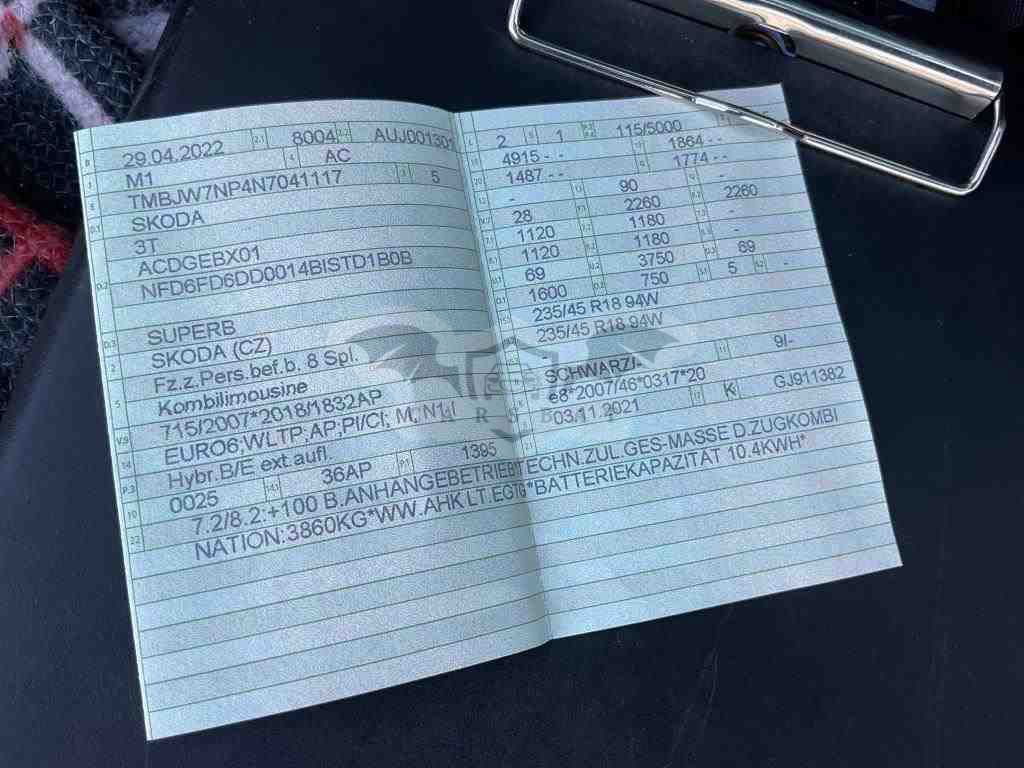 B 29.04.2022 2.1 8004 2.2 AUJ001301
J M1 4 AC
E TMBJW7NP4N7041117 3 5
D.1 SKODA
3T
D.2 ACDGEBX01
NFD6FD6DD0014BISTD1B0B
D.3 SUPERB
2 SKODA (CZ)
5 Fz.z.Pers.bef.b. 8 Spl.
Kombilimousine
V.9 715/2007*2018/1832AP
14 EURO6;WLTP;AP;PI/CI; M, N1 I
P.3 Hybr.B/E ext.aufl.
10 0025 14.1 36AP P.1 1395
22 7.2/8.2:+100 B.ANHANGEBETRIEB*TECHN.ZUL.GES-MASSE D.ZUGKOMBI
NATION:3860KG*WW.AHK LT.EGTG*BATTERIEKAPAZITÄT 10.4KWH*
2 9 1 115/5000
4915 - - 1864 - -
1487 - - 1774 - -
- 90 -
28 2260 2260
1120 1180 -
1120 1180 -
69 3750 69
1600 750 5 -
235/45 R18 94W
235/45 R18 94W
SCHWARZ/- 9/-
e8*2007/46*0317*20
03.11.2021 K GJ911382